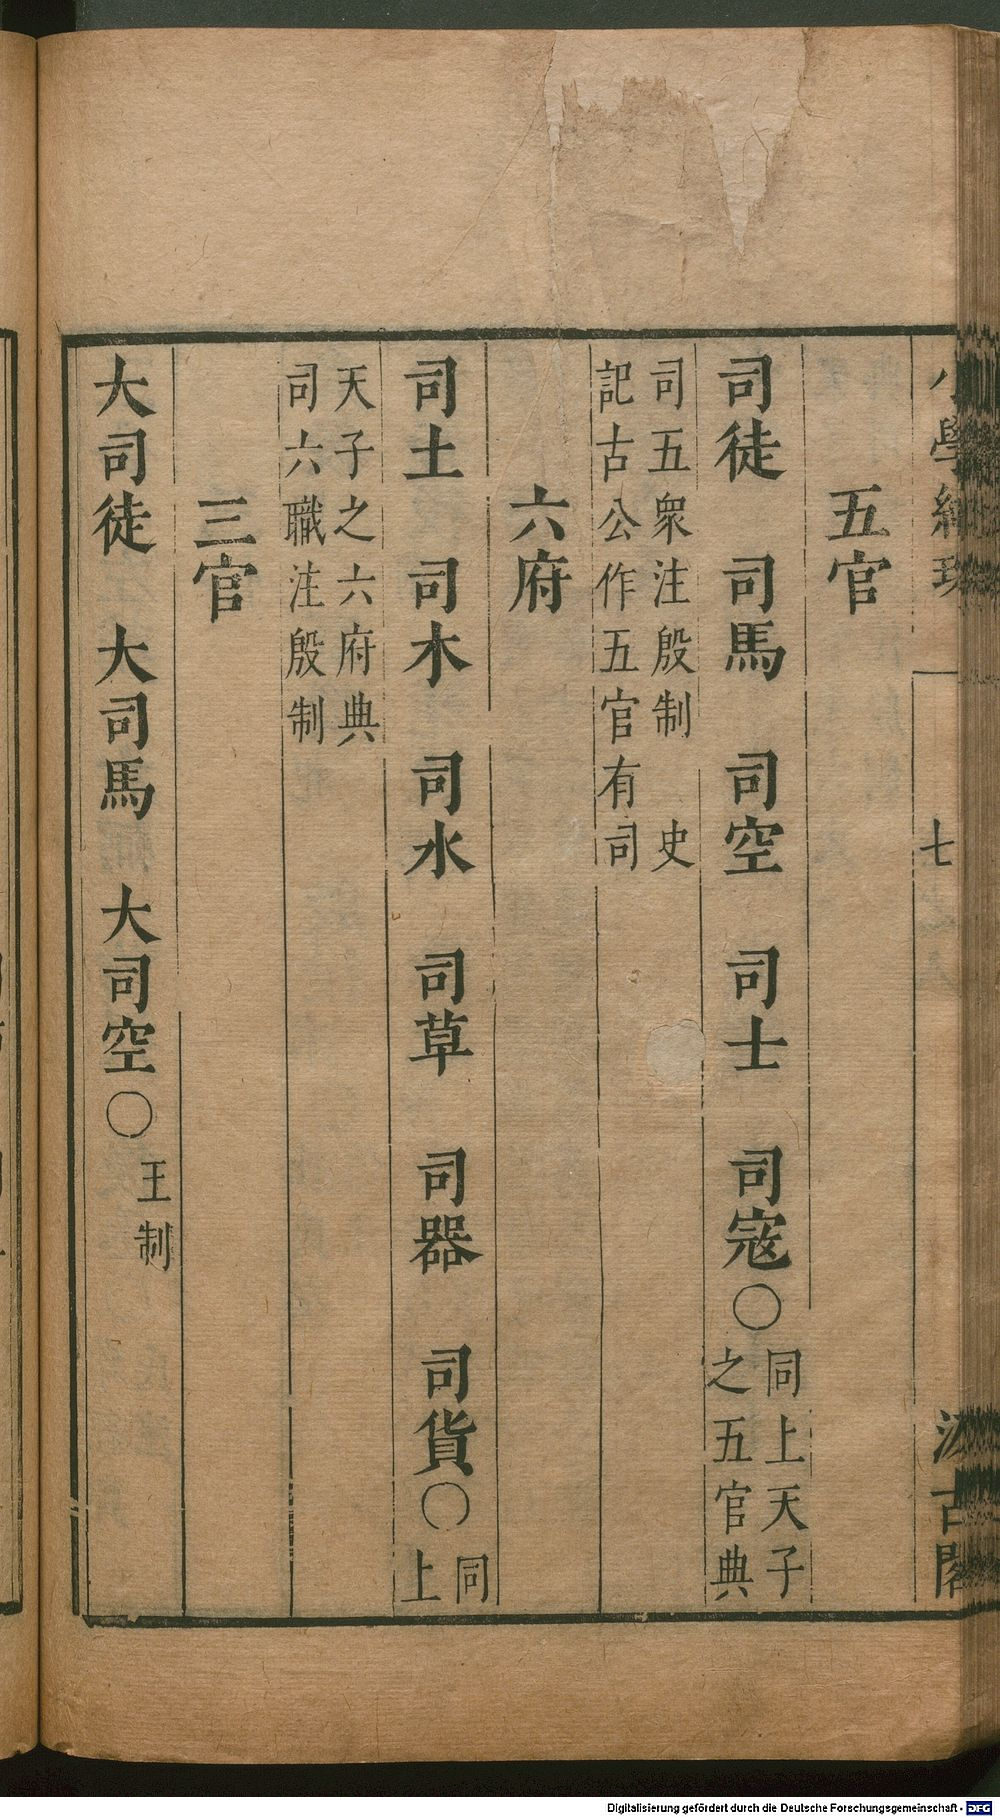 五官
司徒 司馬 司空 司士 司寇○同上天子
之五官典
司五衆注殷制 史
記古公作五官有司
六府
司土 司木 司水 司草 司器 司貨○同
上
天子之六府典
司六職注殷制
三官
大司徒 大司馬 大司空○王制
小學紺珠
七
汲古閣
Digitalisierung gefördert durch die Deutsche Forschungsgemeinschaft - DFG